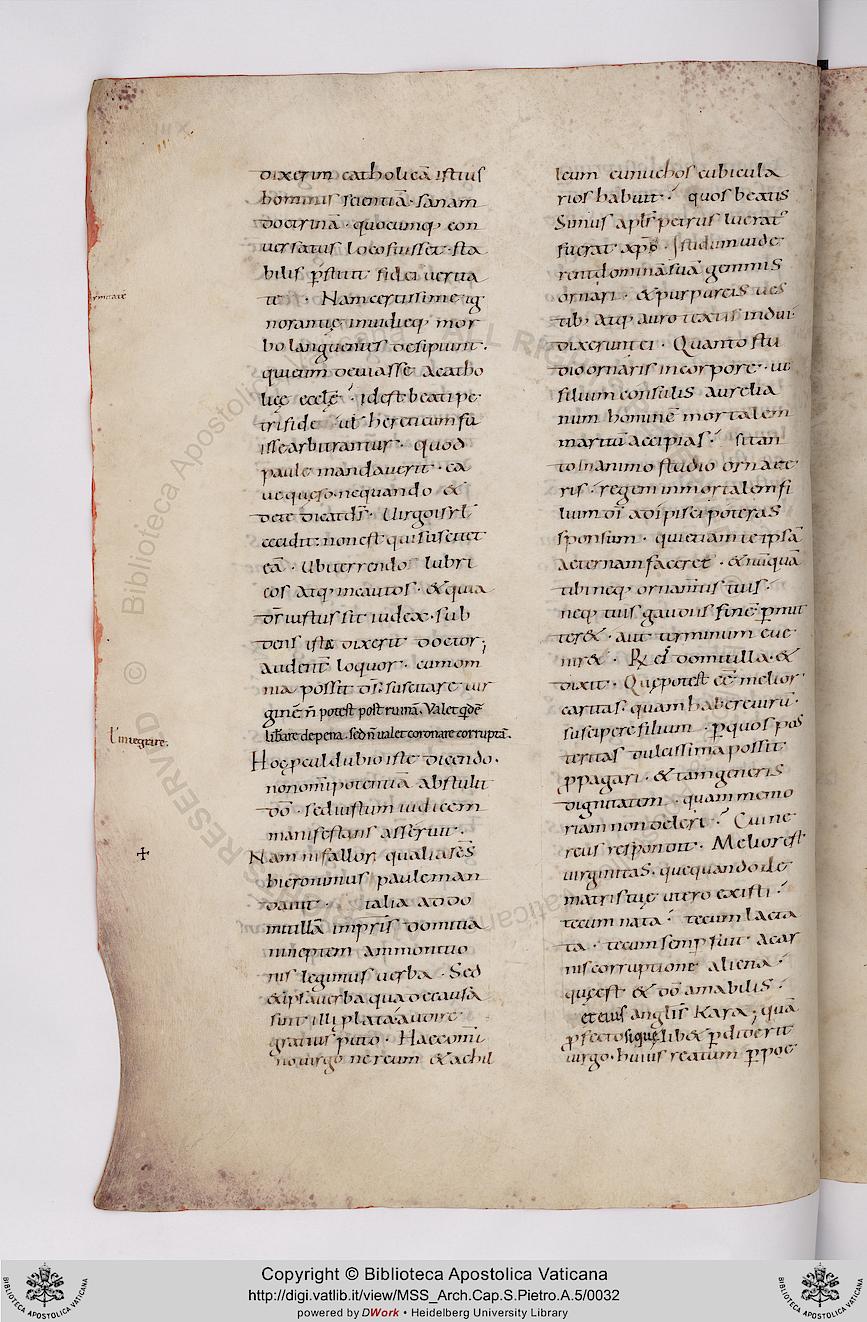 dixerim catholicā istius
hominis scientiā · sanam
doctrinā · quocumq; con
versatus loco fuisset · sta
bilis p̄stitit fidei verita
te · Nam certissime ig
norantię invidięq; mor
bo languentes desipiunt ·
qui eum deviasse a catho
licę eccłę · id est beati pe
tri fide ut hereticum fu
isse arbitrantur · quod
paule mandaverit · ca
ve quęso · ne quando &
de te dicat dn̄s · Virgo isrł
cecidit: non est qui suscitet
eā · Ubi terrendo lubri
cos atq; incautos · & quia
dn̄s iustus sit iudex · sub
dens iste dixerit doctor;
audent̄ loquor · cum om
nia possit dn̄s · suscitare vir
ginē n̄ potest post ruinā. Valet qdē
libare de pena · sed n̄ valet coronare corruptā.
Hoc p̄cul dubio iste dicendo ·
non om̄ipotentiā abstulit
dō · sed iustum iudicem
manifestans asseruit ·
Nam ni fallor, qualia sc̄s
hieronimus paule man
davit · talia ad do
mitillā impris domitia
ni neptem ammonitio
nis legimus verba · Sed
& ipsa verba qua de causā
sint illi plata · audire
gratius puto · Haec om̄i
no virgo nereum & achil
leum eunuchos cubicula
rios habuit · quos beatis
simus apłs petrus lucrat⁹
fuerat xp̄o · Isti dum vide
rent dominā suā gemmis
ornari · & purpureis ves
tib; atq; auro textis indui
dixerunt ei · Quanto stu
dio ornaris in corpore · ut
filium consulis aurelia
num hominē mortalem
maritū accipias · si tan
to in animo studio ornare
ris · regem inmortalem fi
lium dī adipisci poteras
sponsum · qui etiam te ipsā
aeternam faceret · & nūquā
tibi neq; ornam̄tis tuis ·
neq; tuis gaudiis finē p̄mit
ter& · aut terminum eve
nir& · R̨ ei domitilla · &
dixit · Quę potest eē melior
caritas · quam habere virū ·
suscipere filium · p̄ quos pos
teritas dulcissima possit
p̄pagari · & tam generis
dignitatem · quam memo
riam non deleri · Cui ne
reus respondit · Melior est
virginitas · quę quando de
matris tuę utero existi ·
tecum nata · tecum lacta
ta · tecum semp fuit a car
nis corruptione aliena ·
quę est & dō amabilis ·
et eius anglis kara; quā
p̄fecto si quę lib& p̄diderit
virgo · huius reatum p̄ poe
l' integrare.